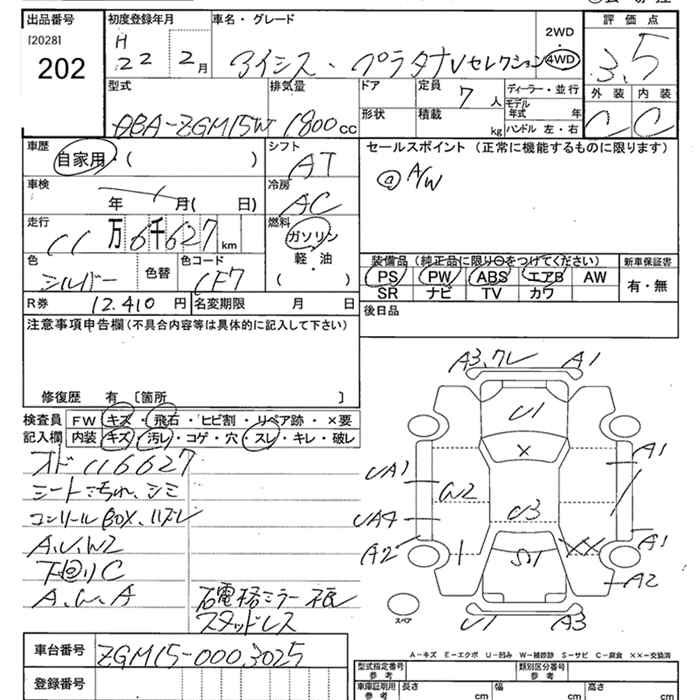 出品番号 初度登録年月 車名・グレード 2WD 評価点
[20281] H 4WD
202 22年 2月 アイシス・プラタナVセレクション 3.5
型式 排気量 ドア 定員 7人 ディーラー・並行 外装 内装
モデル年式 年
DBA-ZGM15W 1800cc 形状 積載 kg ハンドル 左・右 C C
車歴 シフト セールスポイント (正常に機能するものに限ります)
自家用・( ) AT @ A/W
車検 冷房
年 月( 日) AC
走行 燃料
11万6千627km ガソリン
色 色替 色コード 軽・油 装備品 (純正品に限り○をつけてください) 新車保証書
シルバー 1F7 ( ) PS PW ABS エアB AW 有・無
R券 12,410円 名変期限 月 日 SR ナビ TV カワ
注意事項申告欄 (不具合内容等は具体的に記入して下さい) 後日品
修復歴 有 [箇所 ]
検査員 FW キズ・飛石・ヒビ割・リペア跡・×要
記入欄 内装 キズ・汚レ・コゲ・穴・スレ・キレ・破レ
オド116627
シート汚れ、シミ
コンソールBOX、ハズレ
A.U.W2
下回りC
A.W.A 右電格ミラー不良
スタッドレス
A3.フレ A1
U1
×
UA1 W2 A1
UA4 U3
A2 S1 ×× A1
A2
スペア U1 A3
A-キズ E-エクボ U-凹み W-補修跡 S-サビ C-腐食 ××-交換済
車台番号 ZGM15-0003025 型式指定番号 類別区分番号
登録番号 車庫証明用参考 長さ cm 幅 cm 高さ cm